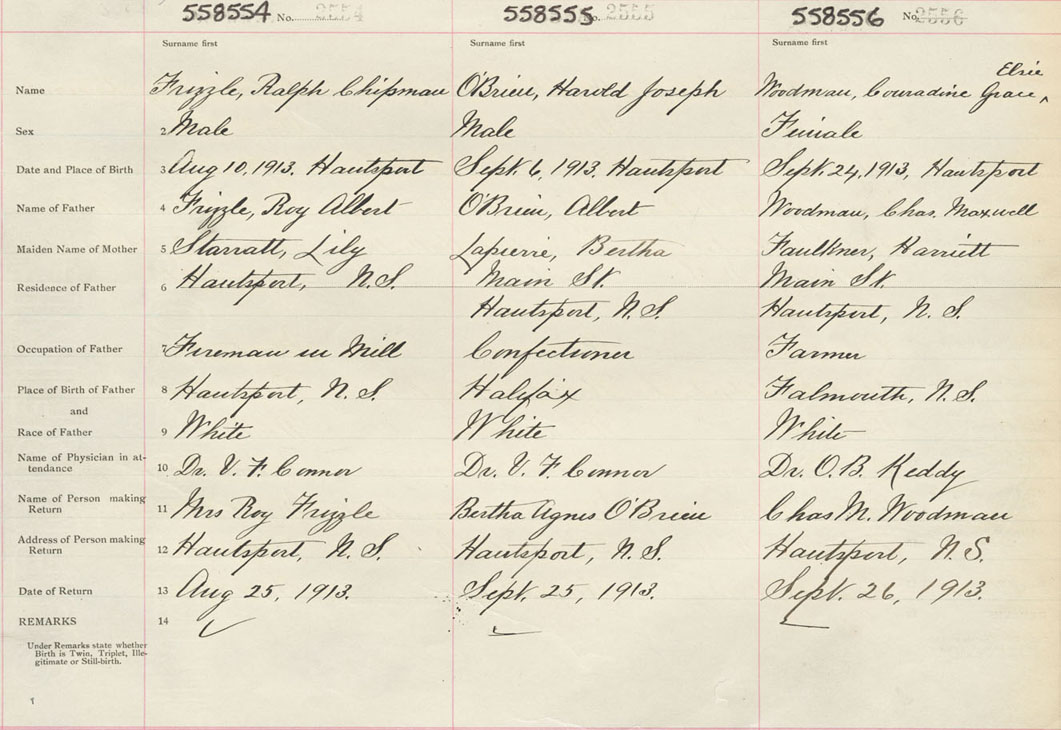 558554 No. 2554 558555 No. 2555 558556 No. 2556
Surname first Surname first Surname first
Elsie
Name Frizzle, Ralph Chipman O'Brien, Harold Joseph Woodman, Couradine Grace, ^
Sex 2 Male Male Female
Date and Place of Birth 3 Aug 10, 1913. Hantsport Sept. 6, 1913. Hantsport Sept. 24, 1913. Hantsport
Name of Father 4 Frizzle, Roy Albert O'Brien, Albert Woodman, Chas. Maxwell
Maiden Name of Mother 5 Starratt, Lily Lapierre, Bertha Faulkner, Harriett
Residence of Father 6 Hantsport, N.S. Main St. Main St.
Hantsport, N.S. Hantsport, N.S.
Occupation of Father 7 Fireman in Mill Confectioner Farmer
Place of Birth of Father 8 Hantsport, N.S. Halifax Falmouth, N.S.
and
Race of Father 9 White White White
Name of Physician in at-
tendance 10 Dr. V. F. Connor Dr. V. F. Connor Dr. O. B. Keddy
Name of Person making
Return 11 Mrs Roy Frizzle Bertha Agnes O'Brien Chas M. Woodman
Address of Person making
Return 12 Hantsport, N.S. Hantsport, N.S. Hantsport, N.S.
Date of Return 13 Aug 25, 1913. Sept. 25, 1913. Sept. 26, 1913.
REMARKS 14
Under Remarks state whether
Birth is Twin, Triplet, Ille-
gitimate or Still-birth.
1